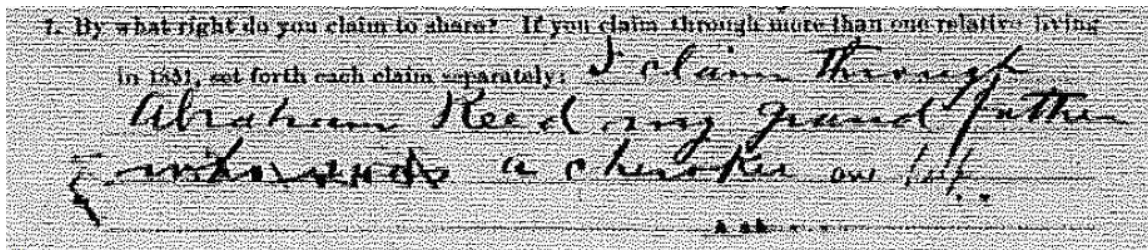 7. By what right do you claim to share? If you claim through more than one relative living
in 1851, set forth each claim separately: I claim through
Abraham Reed my grand father
a cherokee one half